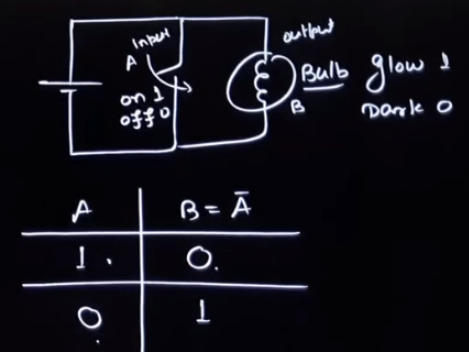 Input
A
on 1
off 0
output
Bulb
B
glow 1
Dark 0
A B = Ā
1 0
0 1